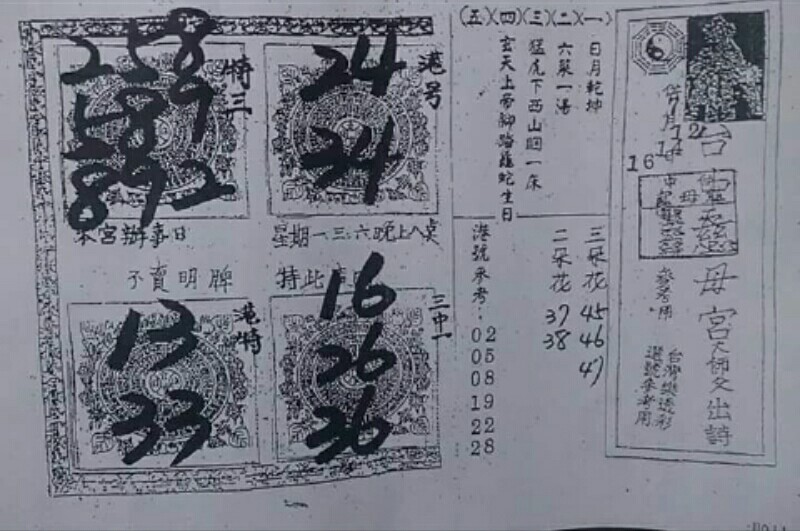 (五)(四)(三)(二)(一)
日月乾坤
六菜一湯
猛虎下西山回一床
玄天上帝腳踏龜蛇生日
三朵花 45 46 47
二朵花 37 38
港號參考:
02
05
08
19
22
28
258
587
872
特三
24
34
港号
本宮辦事日
星期一三六晚上八點
不賣明牌
特此
13
33
港特
16
26
36
三中一
靈
母宮
天師父出詩
參考用
台灣樂透彩
選號參考用
月
12
14
16